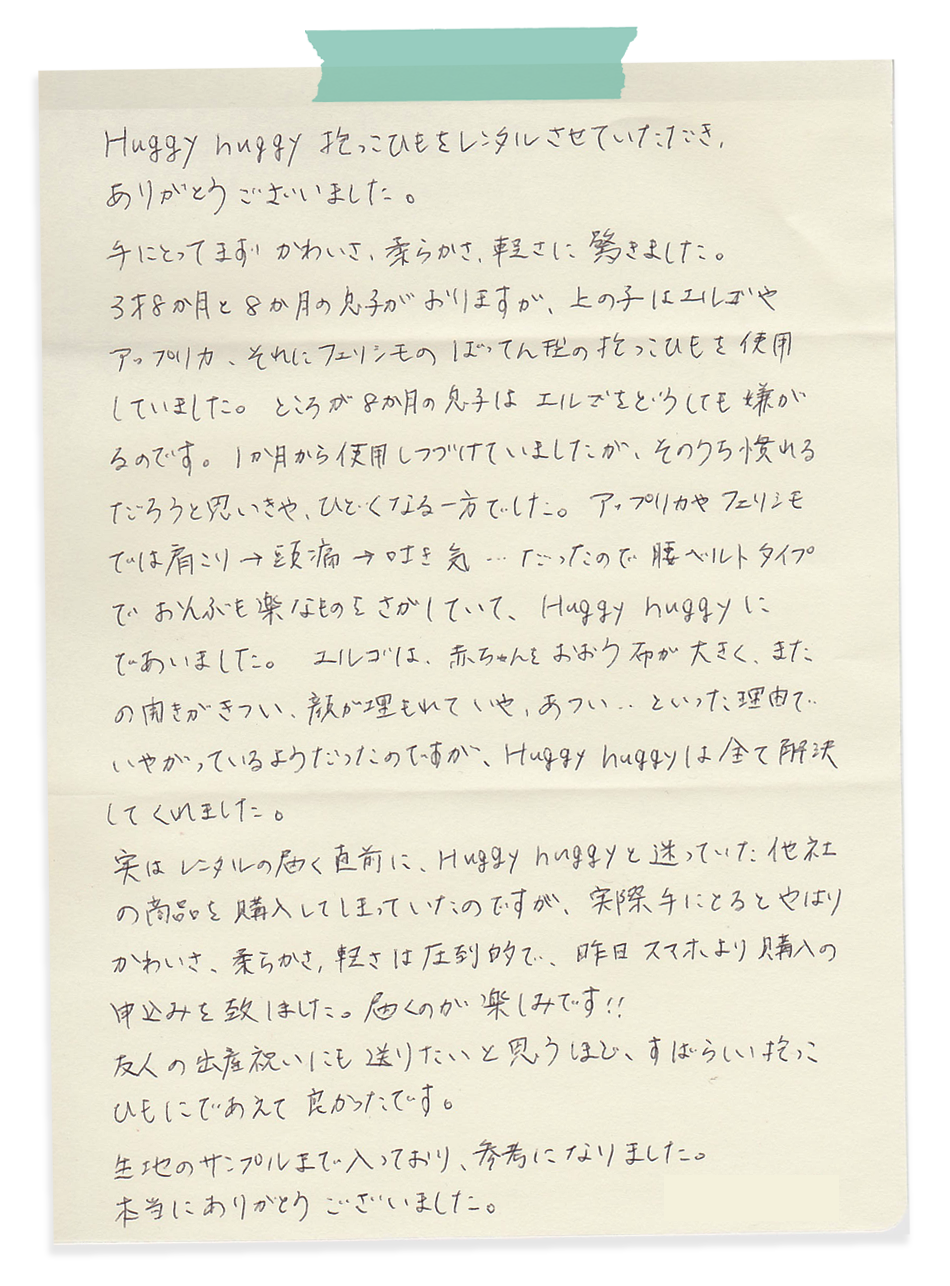 Huggy huggy 抱っこひもをレンタルさせていただき、
ありがとうございました。
手にとってまず かわいさ、柔らかさ、軽さに 驚きました。
3才8か月と 8か月の息子が おりますが、上の子はエルゴや
アップリカ、それにフェリシモの ばってん型の抱っこひもを使用
していました。ところが 8か月の息子は エルゴをどうしても嫌が
るのです。1か月から使用しつづけていましたが、そのうち慣れる
だろうと思いきや、ひどくなる一方でした。アップリカや フェリシモ
では肩こり→頭痛→吐き気…だったので 腰ベルトタイプ
で おんぶも楽なものをさがしていて、Huggy huggyに
であいました。エルゴは、赤ちゃんをおおう布が大きく、また
の開きがきつい、顔が埋もれていや、あつい‥といった理由で
いやがっているようだったのですが、Huggy huggyは全て解決
してくれました。
実は レンタルの届く直前に、Huggy huggyと迷っていた他社
の商品を購入してしまっていたのですが、実際手にとるとやはり
かわいさ、柔らかさ、軽さは圧到的で、昨日スマホより購入の
申込みを致しました。届くのが楽しみです!!
友人の出産祝いにも送りたいと思うほど、すばらしい抱っこ
ひもにであえて良かったです。
生地のサンプルまで入っており、参考になりました。
本当にありがとうございました。